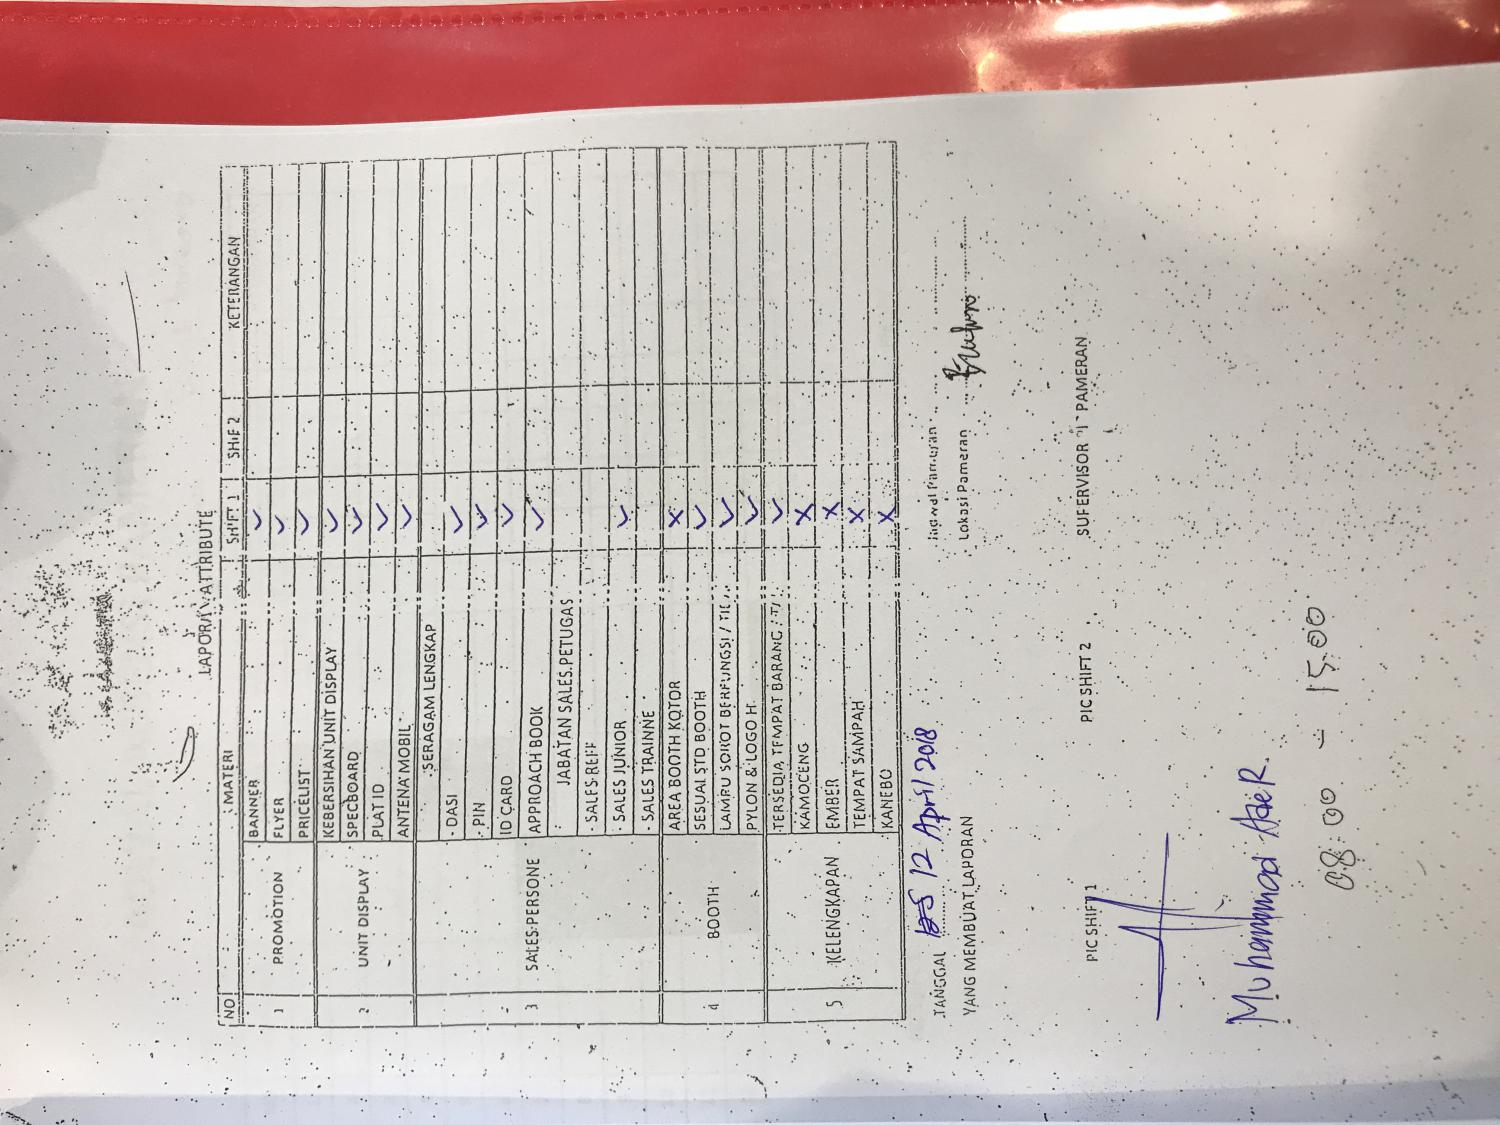 LAPORAN ATTRIBUTE
NO MATERI SHIFT 1 SHIF 2 KETERANGAN
1 PROMOTION BANNER ✓
FLYER ✓
PRICELIST ✓
2 UNIT DISPLAY KEBERSIHAN UNIT DISPLAY ✓
SPECBOARD ✓
PLAT ID ✓
ANTENA MOBIL ✓
3 SALES PERSONE SERAGAM LENGKAP
- DASI ✓
- PIN ✓
ID CARD ✓
APPROACH BOOK ✓
JABATAN SALES PETUGAS
- SALES REF
- SALES JUNIOR ✓
- SALES TRAINNE
4 BOOTH AREA BOOTH KOTOR X
SESUAI STD BOOTH ✓
LAMPU SOROT BERFUNGSI / ✓
PYLON & LOGO H ✓
5 KELENGKAPAN TERSEDIA TEMPAT BARANG ✓
KAMOCENG X
EMBER X
TEMPAT SAMPAH X
KANEBO X
TANGGAL 12 April 2018
YANG MEMBUAT LAPORAN Lokasi Pameran
PIC SHIFT 1 PIC SHIFT 2 SUFERVISOR PAMERAN
Muhammad R.
08:00 - 15.00